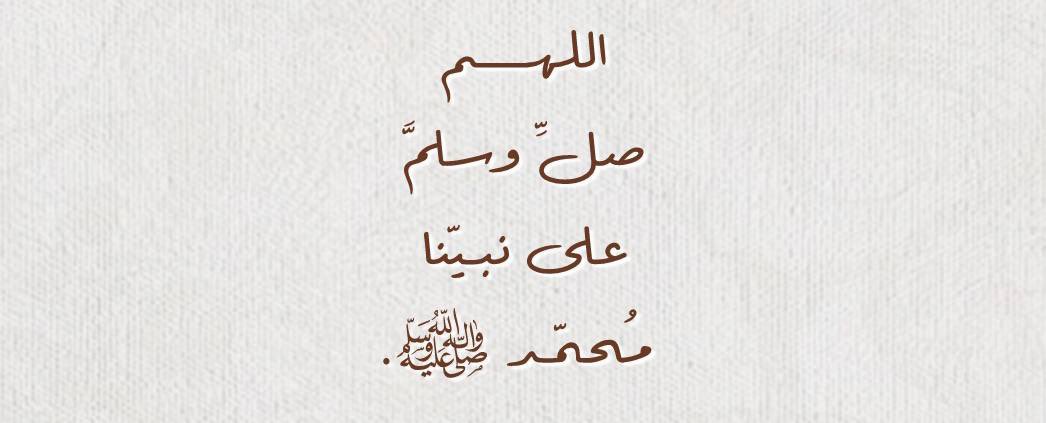 اللهـــم
صلِّ وسلمَّ
على نبيّنا
مُحمّد ﷺ.